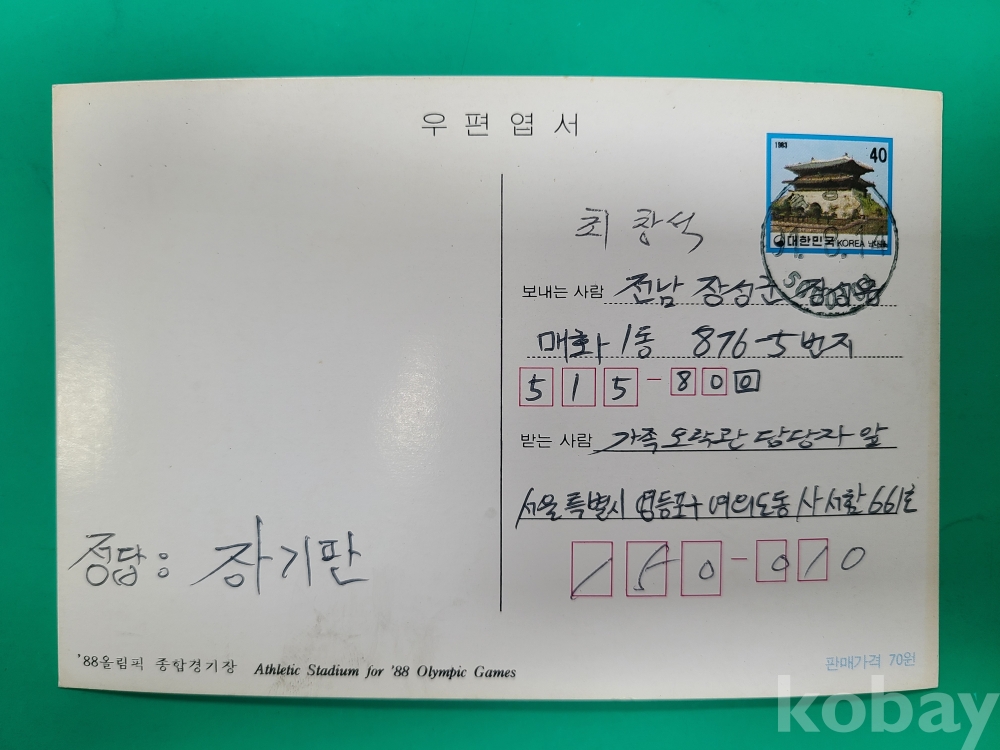 우편엽서
1983
40
대한민국 KOREA
최창석
보내는 사람 전남 장성군 장성읍
매화 1동 876-5번지
515-800
받는 사람 가족오락관 담당자 앞
서울특별시 영등포구 여의도동 사서함 661호
150-010
정답: 장기판
'88올림픽 종합경기장 Athletic Stadium for '88 Olympic Games
판매가격 70원
kobay